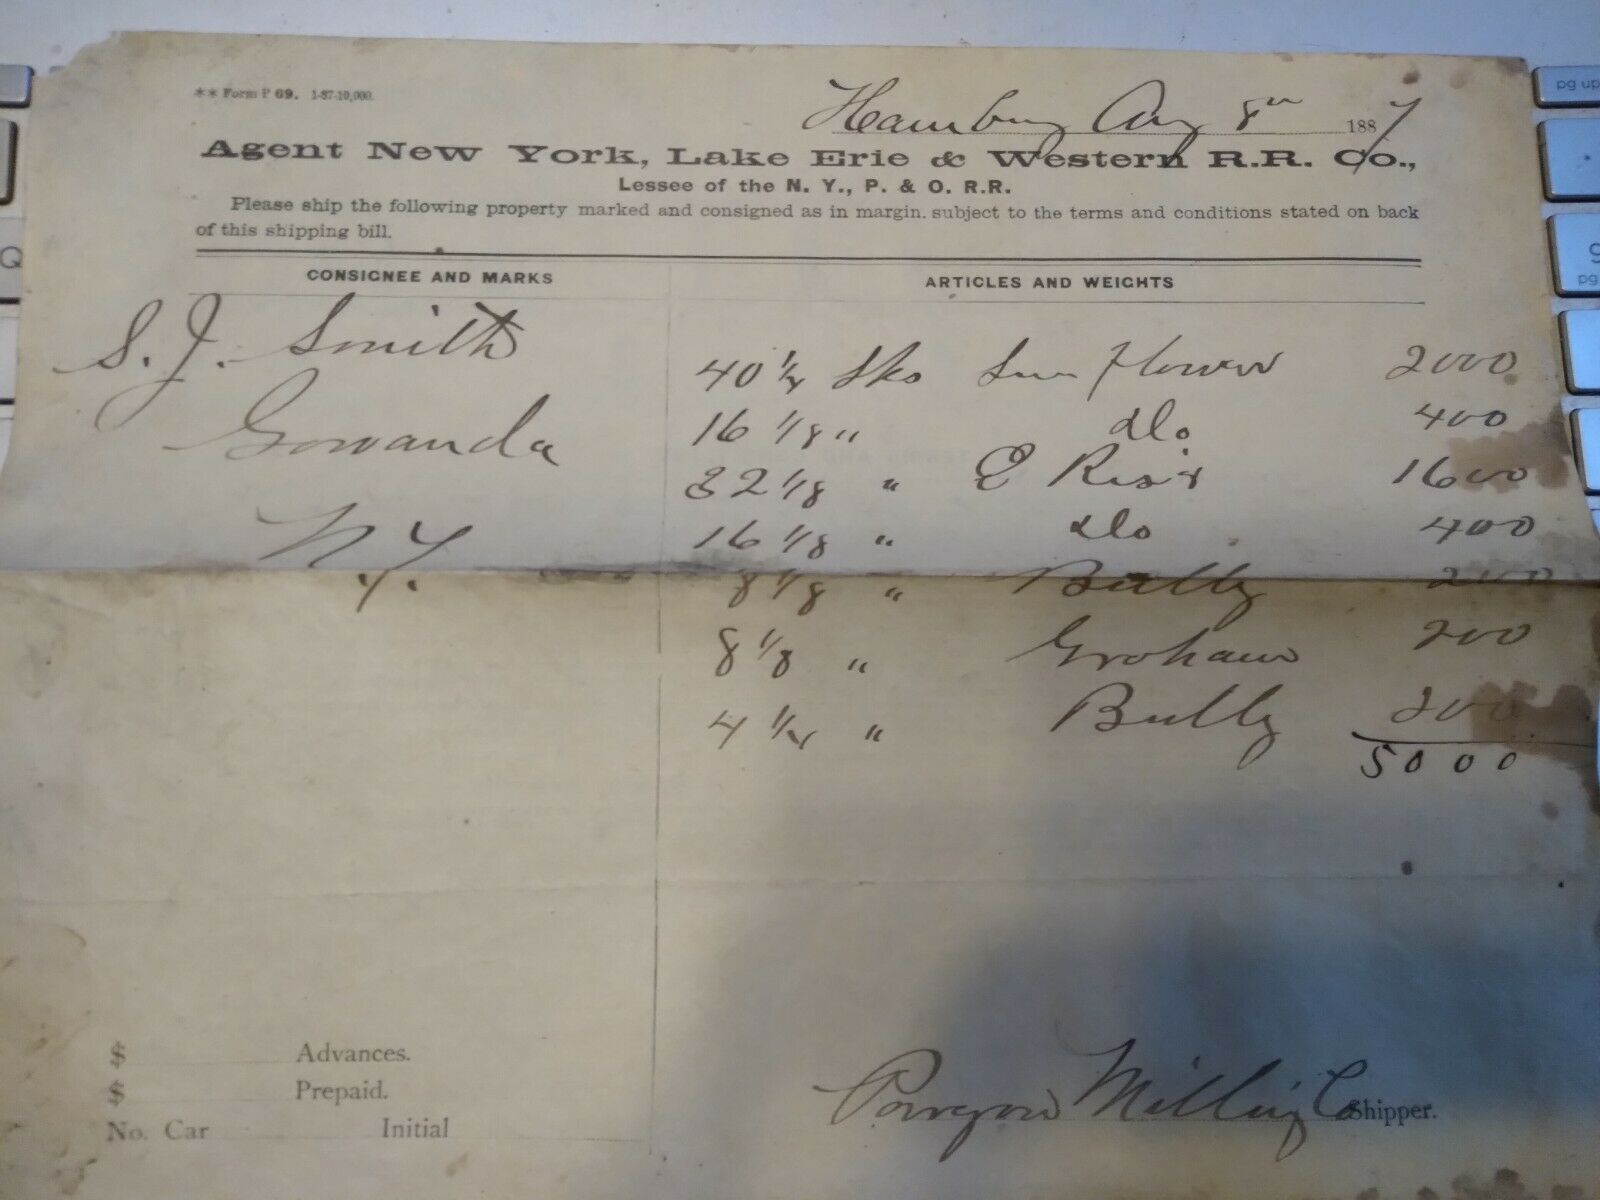 ** Form P 69. 1-87-10,000.
Hamburg Aug 8th 1887
Agent New York, Lake Erie & Western R.R. Co.,
Lessee of the N. Y., P. & O. R.R.
Please ship the following property marked and consigned as in margin, subject to the terms and conditions stated on back
of this shipping bill.
CONSIGNEE AND MARKS ARTICLES AND WEIGHTS
S. J. Smith
40 1/4 Sks Sun Flower 2000
Gowanda
16 1/8 " do 400
32 1/8 " E 1600
N.Y.
16 1/8 " do 400
8 1/8 " Bully 200
8 1/8 " Graham 200
4 1/4 " Bully 200
5000
$ Advances.
$ Prepaid.
No. Car Initial
Paragon Milling Co Shipper.
pg up
Q
pg